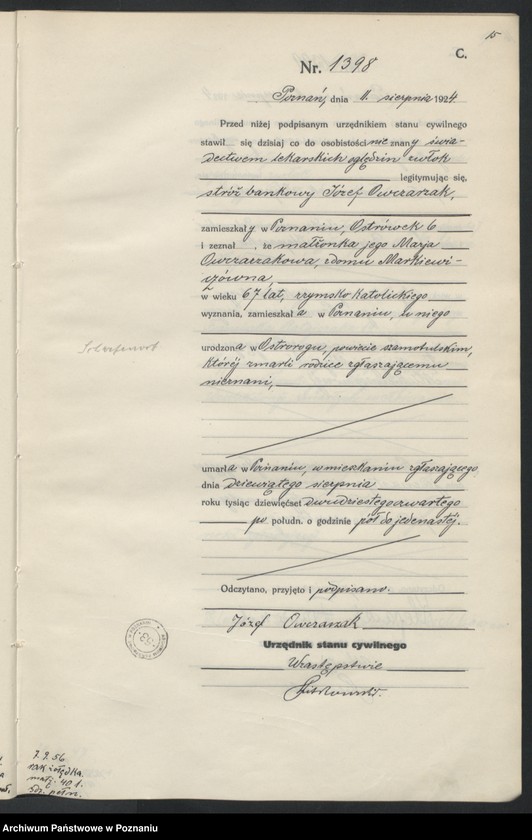 15
C.
Nr. 1398
Poznań, dnia 11. sierpnia 1924
Przed niżej podpisanym urzędnikiem stanu cywilnego
stawił się dzisiaj co do osobistości nieznany świa-
dectwem lekarskich oględzin zwłok
legitymując się,
stróż bankowy Józef Owczarzak,
zamieszkały w Poznaniu, Ostrówek 6
i zeznał, że małżonka jego Marja
Owczarzakowa, zdomu Markiewi-
czówna,
w wieku 67 lat, rzymsko katolickiego
wyznania, zamieszkała w Poznaniu, u niego
urodzona w Ostrorogu, powiecie szamotulskim,
której zmarli rodzice zgłaszającemu
nieznani,
umarła w Poznaniu, w mieszkaniu zgłaszającego
dnia dziewiątego sierpnia
roku tysiąc dziewięćset dwudziestego czwartego
po połudn. o godzinie pół do jedenastej.
Odczytano, przyjęto i podpisano.
Józef Owczarzak
Urzędnik stanu cywilnego
W zastępstwie
7. 9. 56
rak żołądka.
małż. 40 l.
Archiwum Państwowe w Poznaniu